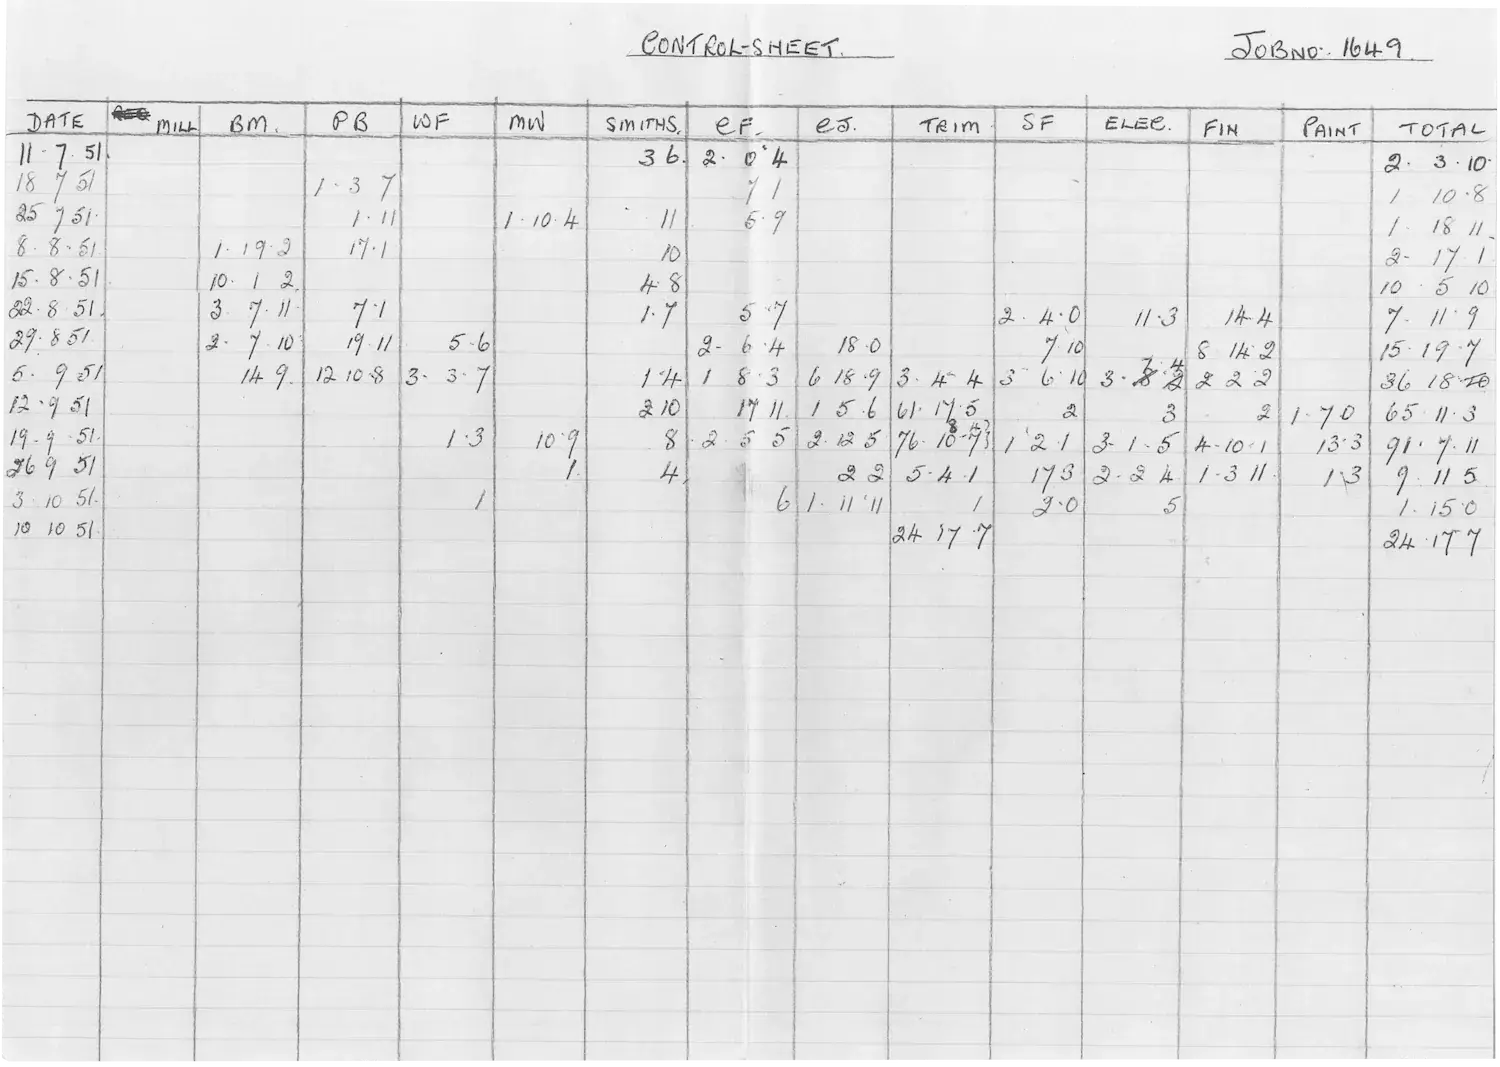 CONTROL-SHEET. JOB NO:. 1649
DATE MILL BM. PB WF MW SMITHS. CF. CJ. TRIM SF ELEC. FIN PAINT TOTAL
11 - 7. 51. 3 6. 2. 0 4 2. 3. 10.
18 7 51 1 - 3 7 7 1 1 10.8
25 7 51. 1. 11 1. 10. 4 11 5. 9 1. 18 11
8. 8. 51. 1. 19. 2 17. 1 10 2- 17 1
15. 8. 51 10. 1 2. 4. 8 10 5 10
22. 8 51. 3 7. 11. 7 1 1. 7 5 7 2. 4. 0 11. 3 14. 4 7. 11. 9
29. 8 51. 2. 7. 10 19. 11 5. 6 2- 6. 4 18. 0 7 10 8 14. 2 15. 19. 7
5. 9 51 14 9. 12 10. 8 3- 3. 7 1. 4. 1 8. 3 6 18. 9 3. 4- 4 3 6. 10 3. 7. 4 2 2 2 36 18.
12. 9 51 2 10 17 11. 1 5. 6 61. 17. 5 2 3 2 1. 7 0 65. 11. 3
19. 9. 51. 1. 3 10. 9 8 2. 5 5 2. 12 5 76. 1 2. 1 3. 1. 5 4. 10. 1 13. 3 91. 7. 11
26 9 51 1. 4 2 2 5. 4. 1 17 3 2. 2 4 1. 3 11. 1 3 9. 11 5
3. 10 51. 1 6 1. 11. 11 1 2. 0 5 1. 15. 0
10 10 51. 24 17 7 24. 17 7